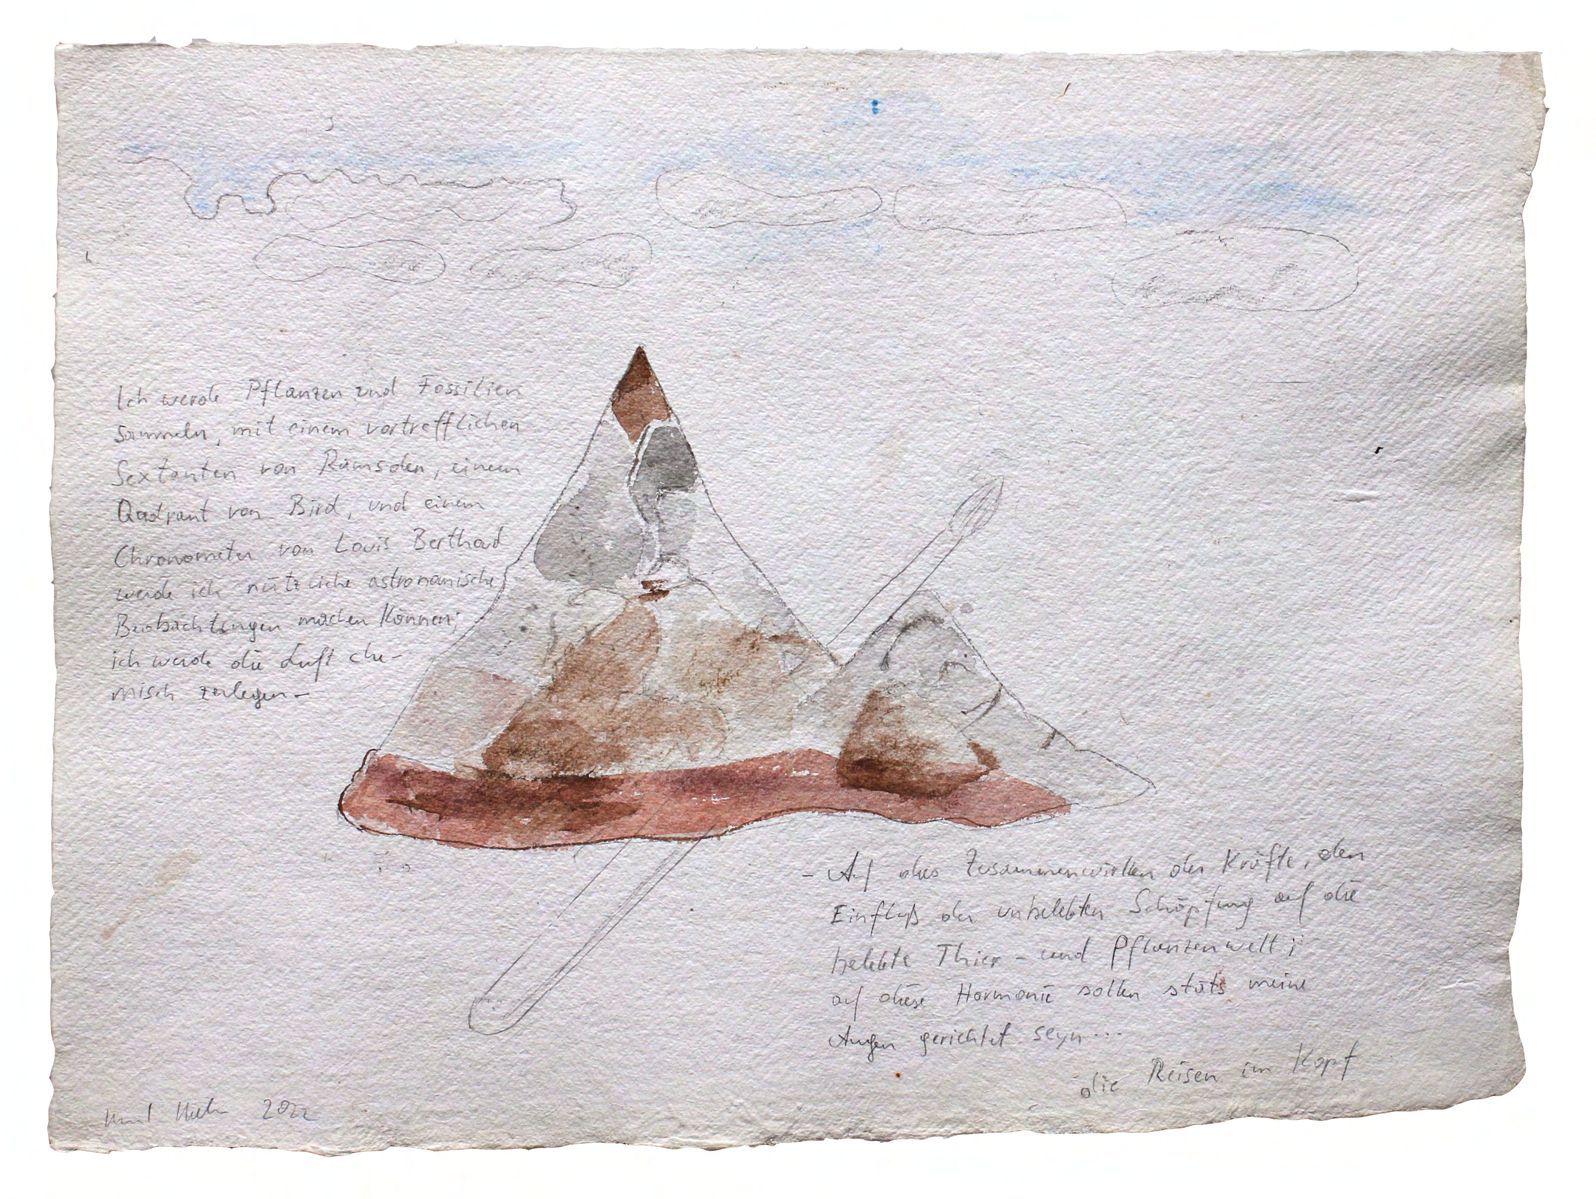 Ich werde Pflanzen und Fossilien
sammeln, mit einem vortrefflichen
Sextanten von Ramsden, einem
Qadrant von Bird, und einem
Chronometer von Louis Berthoud
werde ich nützliche astronomische
Beobachtungen machen können;
ich werde die Luft che-
misch zerlegen-
- Auf das Zusammenwirken der Kräfte, den
Einfluß der unbelebten Schöpfung auf die
belebte Thier - und Pflanzenwelt;
auf diese Harmonie sollen stäts meine
Augen gerichtet seyn...
die Reisen im Kopf
2022